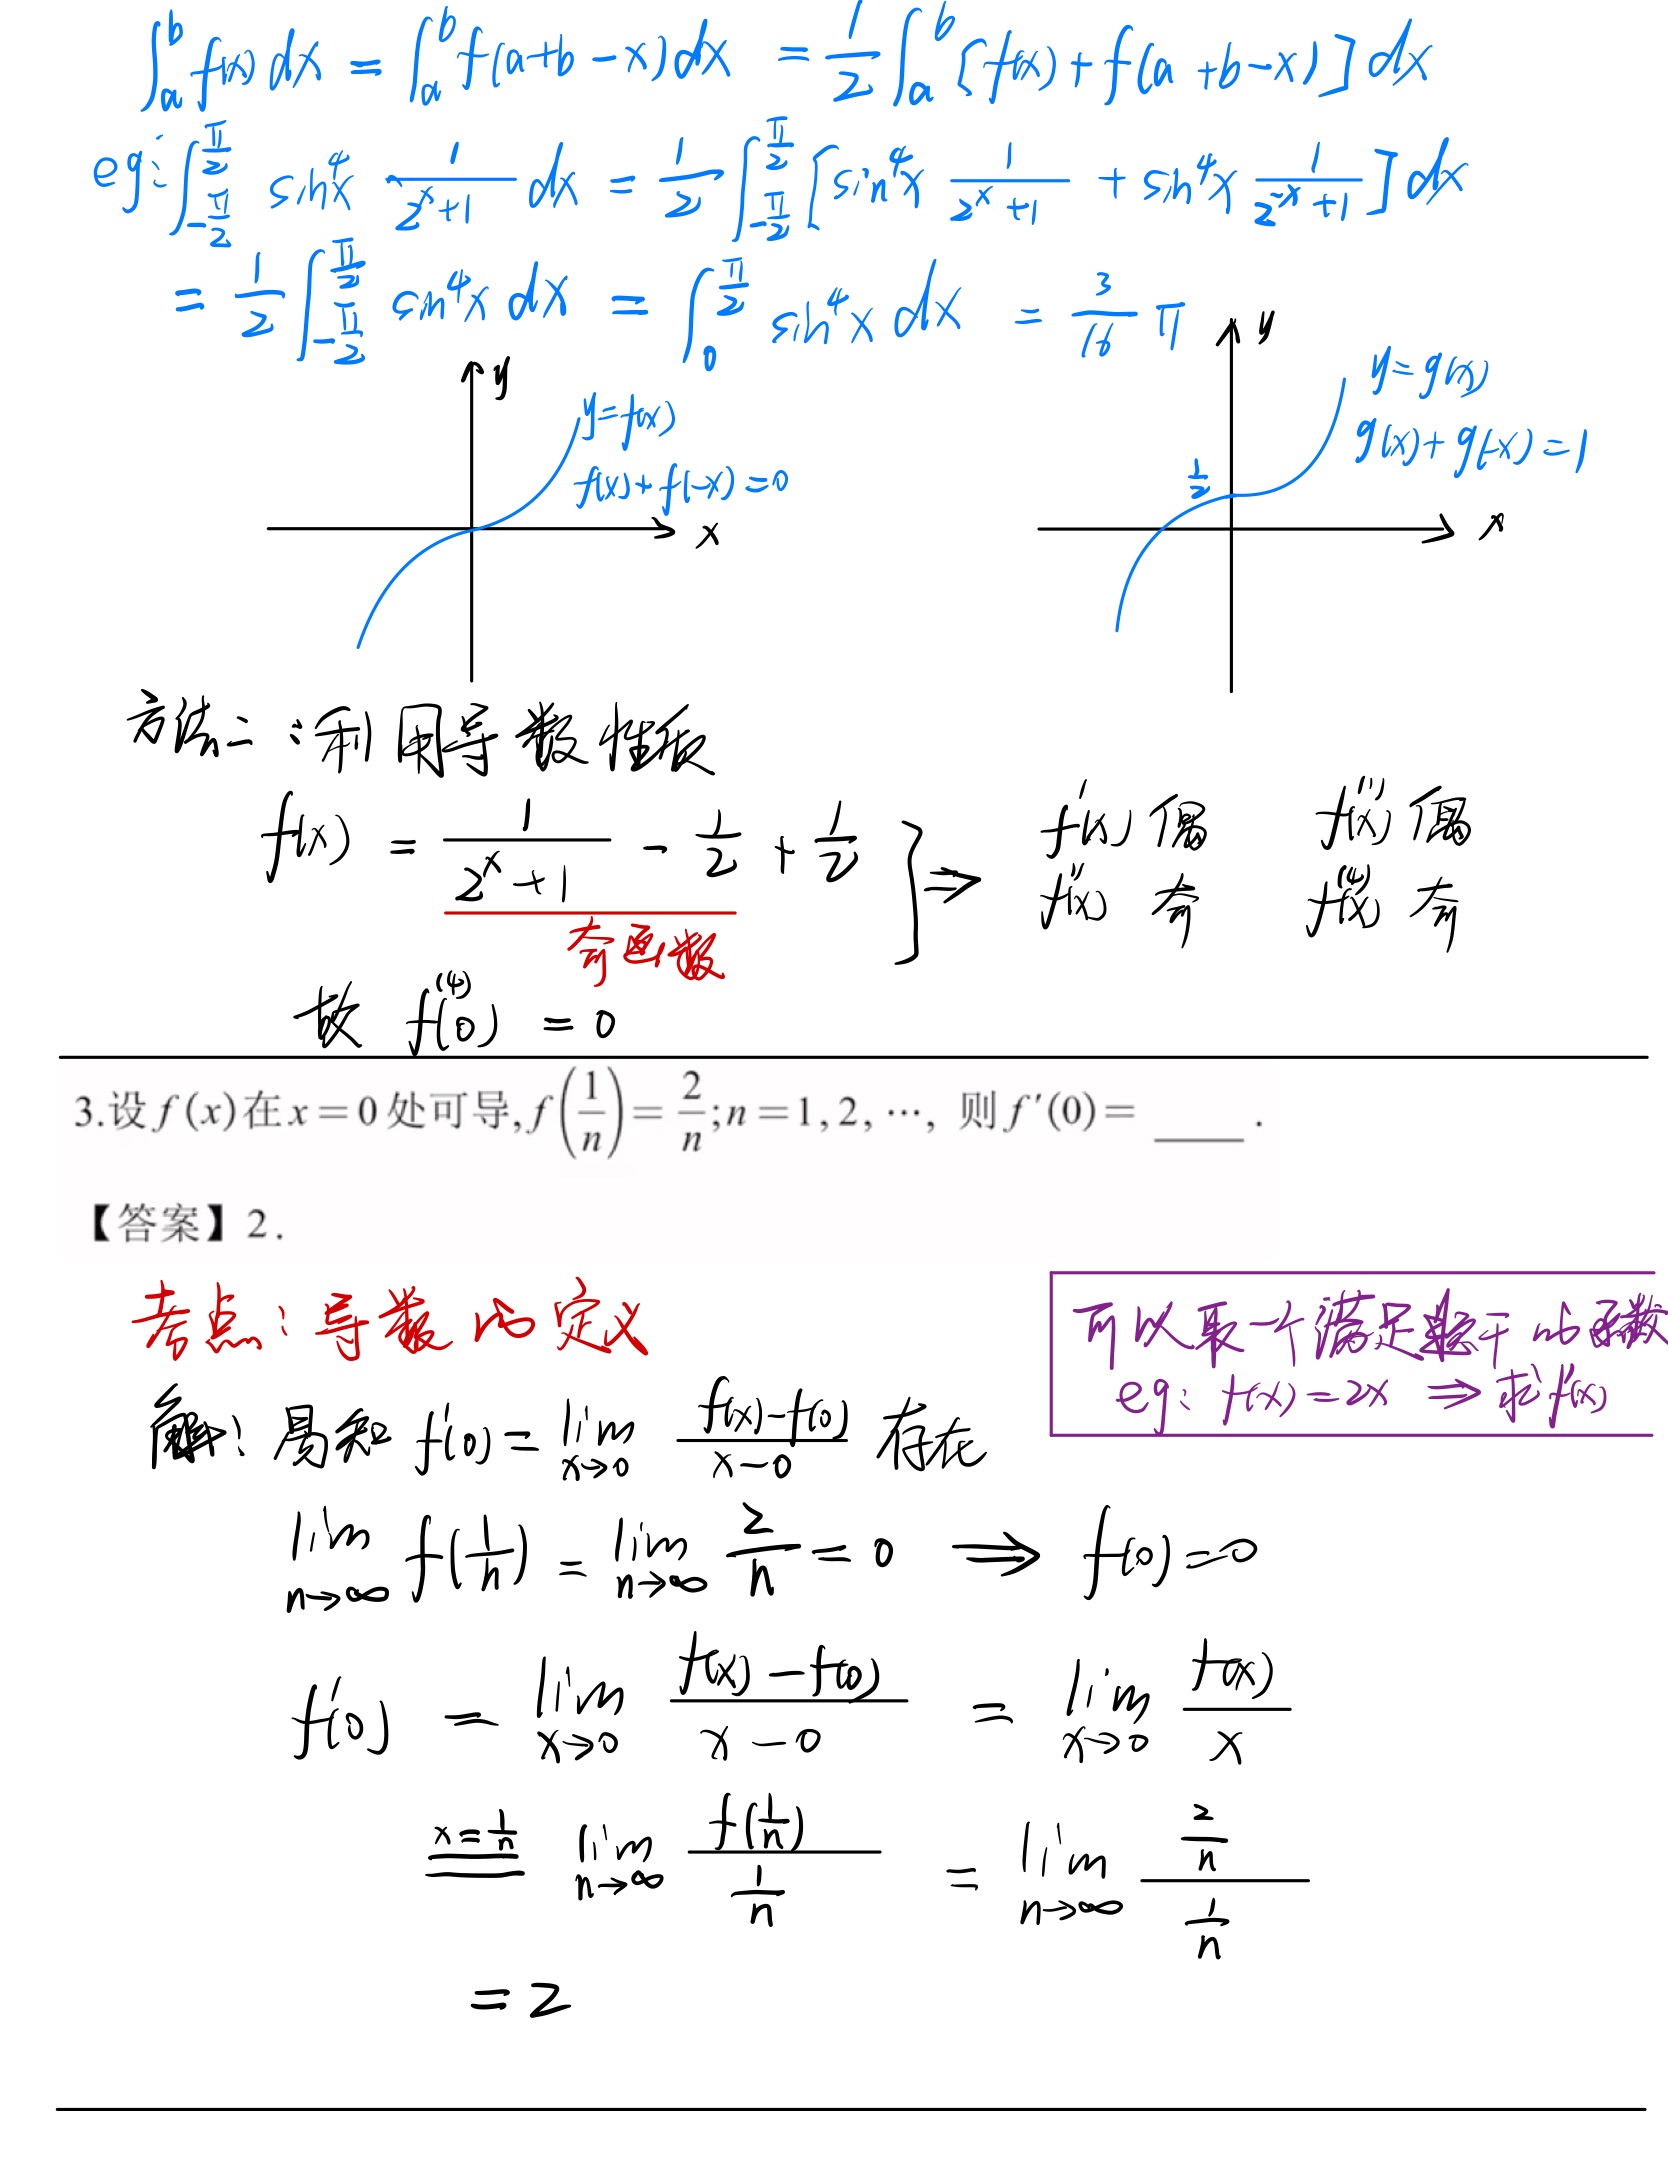 ∫_a^b f(x) dx = ∫_a^b f(a+b-x) dx = 1/2 ∫_a^b [f(x) + f(a+b-x)] dx
eg: ∫_{-π/2}^{π/2} sin⁴x 1/(2^x+1) dx = 1/2 ∫_{-π/2}^{π/2} [sin⁴x 1/(2^x+1) + sin⁴x 1/(2^{-x}+1)] dx
= 1/2 ∫_{-π/2}^{π/2} sin⁴x dx = ∫_0^{π/2} sin⁴x dx = 3/16 π
y
y=f(x)
f(x)+f(-x)=0
x
y
y=g(x)
g(x)+g(-x)=1
1/2
x
方法二:利用导数性质
f(x) = 1/(2^x+1) - 1/2 + 1/2 } ⇒ f'(x) 偶 f'''(x) 偶
f''(x) 奇 f^(4)(x) 奇
奇函数
故 f^(4)(0) = 0
3.设 f(x)在 x=0 处可导, f(1/n) = 2/n; n=1,2,…, 则 f′(0)= ____ .
【答案】2.
考点:导数的定义
可以取一个满足题干的函数
eg: f(x)=2x ⇒ 求f'(x)
解:易知 f'(0) = lim_{x→0} (f(x)-f(0))/(x-0) 存在
lim_{n→∞} f(1/n) = lim_{n→∞} 2/n = 0 ⇒ f(0)=0
f'(0) = lim_{x→0} (f(x)-f(0))/(x-0) = lim_{x→0} f(x)/x
x=1/n lim_{n→∞} f(1/n)/(1/n) = lim_{n→∞} (2/n)/(1/n)
= 2